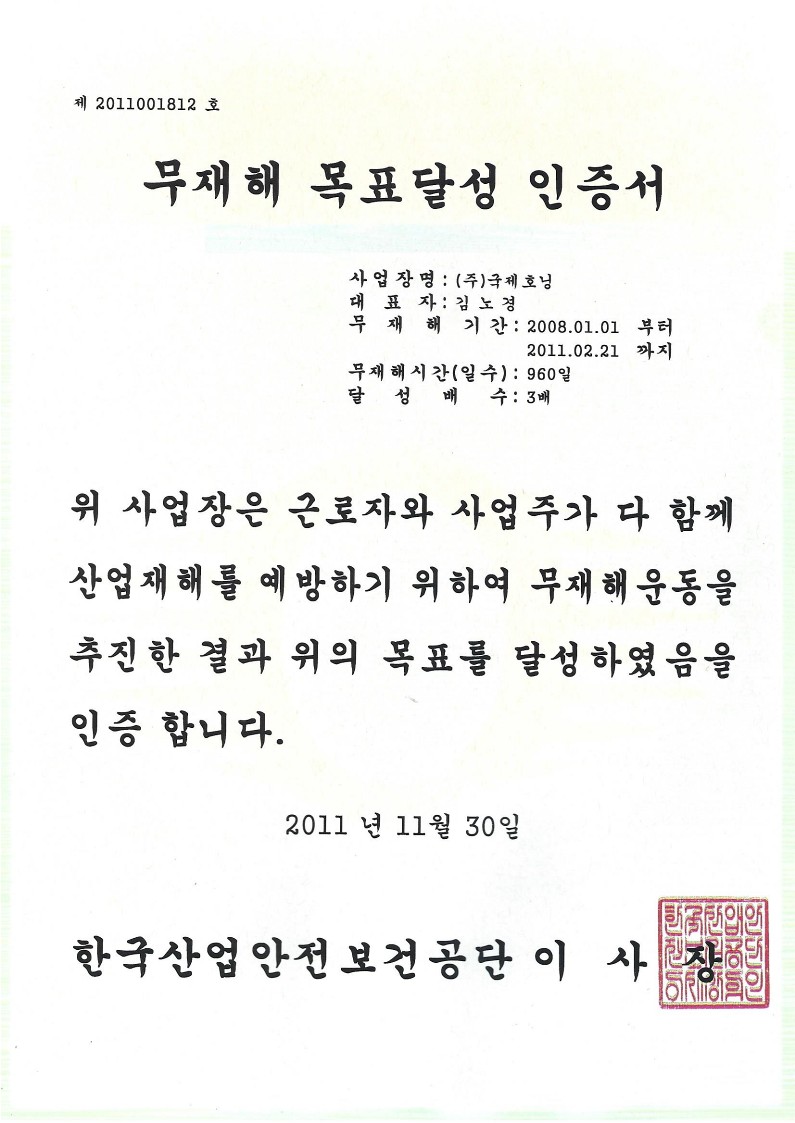 제 2011001812 호
무재해 목표달성 인증서
사업장명 : (주)국제호닝
대 표 자 : 김노경
무 재 해 기 간 : 2008.01.01 부터
2011.02.21 까지
무재해시간(일수) : 960일
달 성 배 수 : 3배
위 사업장은 근로자와 사업주가 다 함께
산업재해를 예방하기 위하여 무재해운동을
추진한 결과 위의 목표를 달성하였음을
인증 합니다.
2011 년 11월 30일
한국산업안전보건공단 이 사 장